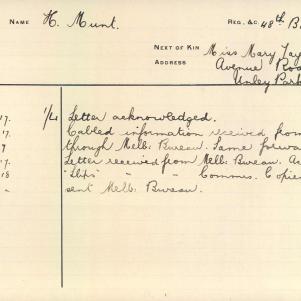 NAME H. Munt. REG. &C. 48th B
NEXT OF KIN Miss Mary Tay
ADDRESS Avenue Roa
Unley Park
17. 1/4 Letter acknowledged.
17. Cabled information received from
9 through Melb: Bureau. Same forwar
17. Letter received from Melb: Bureau. Ac
18 "Slips" " " Commrs. Copies
" sent Melb: Bureau.